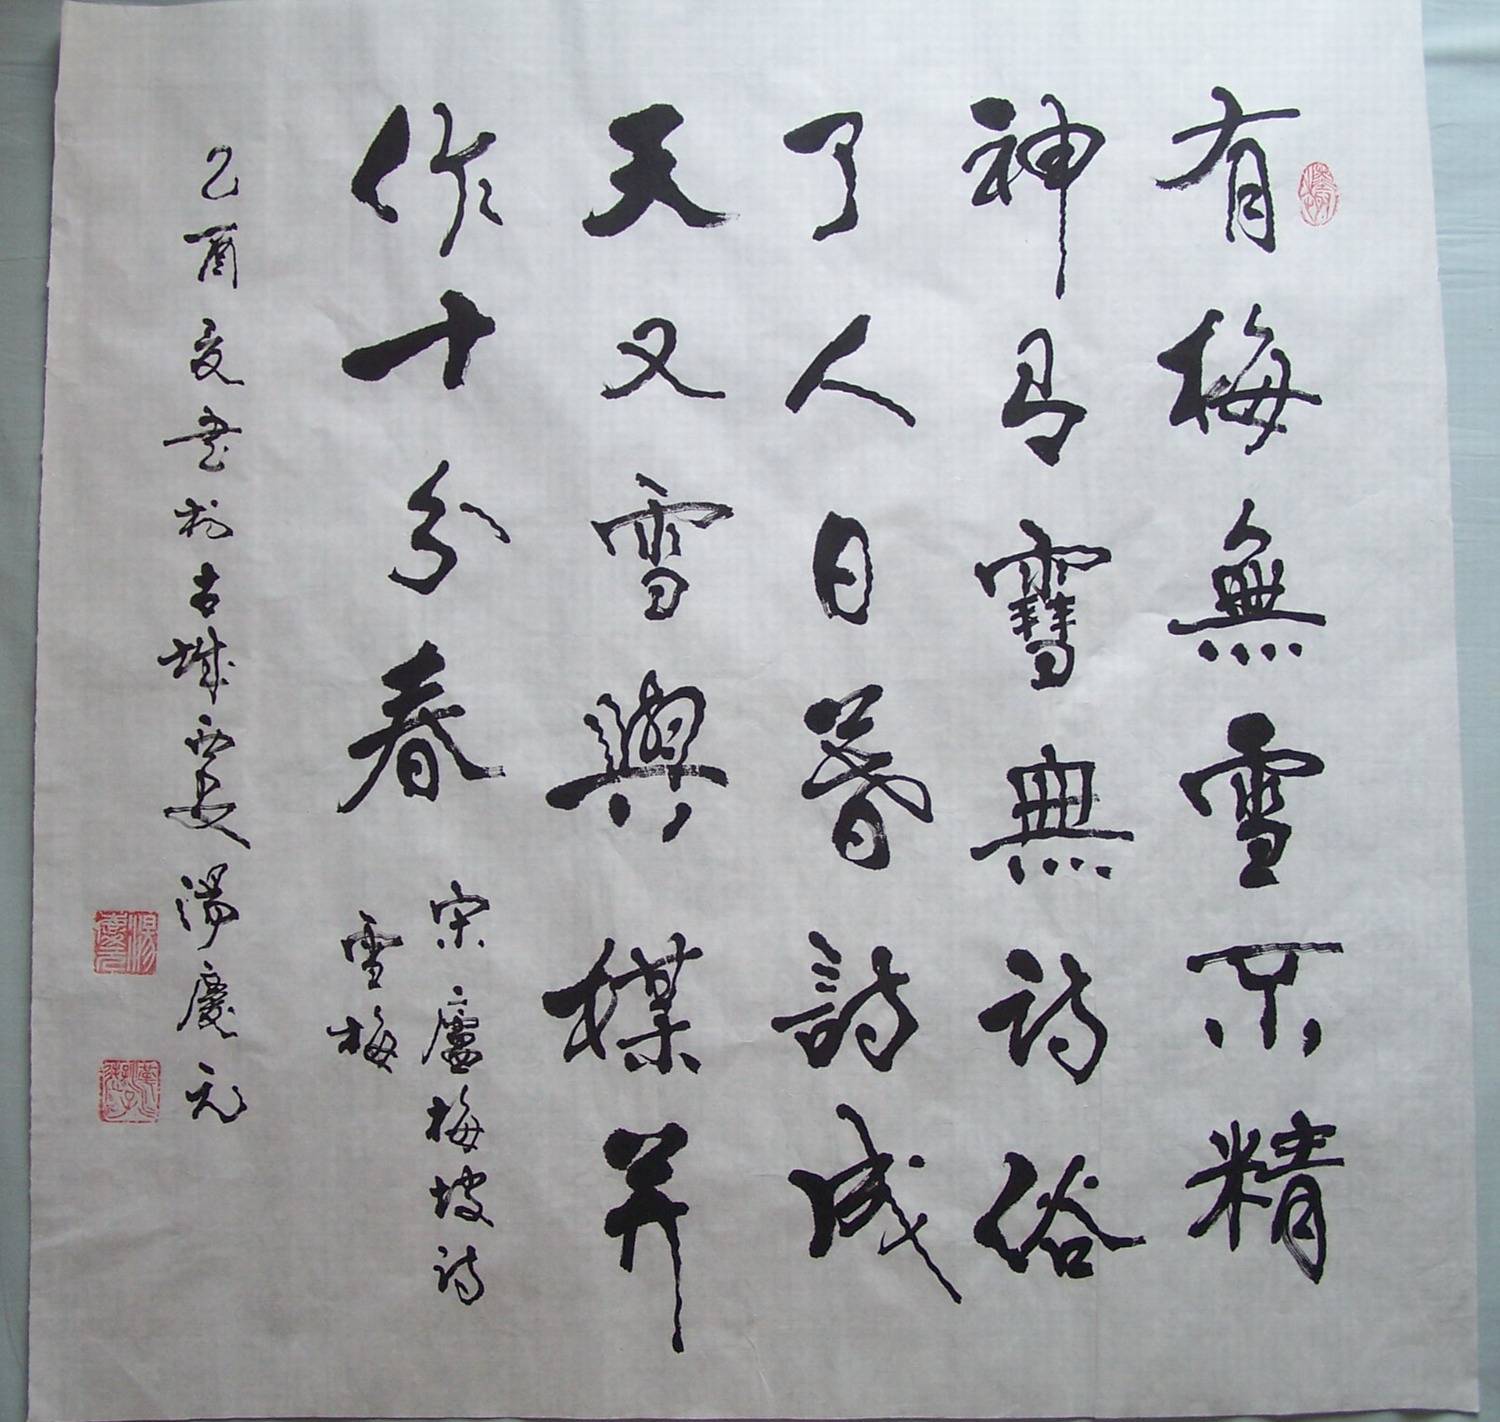 有梅無雪不精
神有雪無诗俗
了人日暮詩成
天又雪與楳并
作十分春
宋廬梅坡诗
雪梅
乙酉夏書於古城西安湯慶元